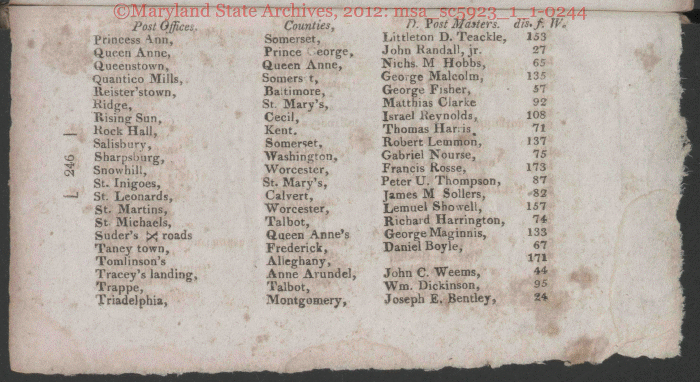 ©Maryland State Archives, 2012: msa_sc5923_1_1-0244
Post Offices. Counties, Post Masters. dis. f. W.
Princess Ann, Somerset, Littleton D. Teackle, 153
Queen Anne, Prince George, John Randall, jr. 27
Queenstown, Queen Anne, Nichs. M Hobbs, 65
Quantico Mills, Somers t, George Malcolm, 135
Reister'stown, Baltimore, George Fisher, 57
Ridge, St. Mary's, Matthias Clarke 92
Rising Sun, Cecil, Israel Reynolds, 108
Rock Hall, Kent. Thomas Harris, 71
Salisbury, Somerset, Robert Lemmon, 137
Sharpsburg, Washington, Gabriel Nourse, 75
Snowhill, Worcester, Francis Rosse, 173
St. Inigoes, St. Mary's, Peter U. Thompson, 87
St. Leonards, Calvert, James M Sollers, 82
St. Martins, Worcester, Lemuel Showell, 157
St. Michaels, Talbot, Richard Harrington, 74
Suder's X roads Queen Anne's George Maginnis, 133
Taney town, Frederick, Daniel Boyle, 67
Tomlinson's Alleghany, 171
Tracey's landing, Anne Arundel, John C. Weems, 44
Trappe, Talbot, Wm. Dickinson, 95
Triadelphia, Montgomery, Joseph E. Bentley, 24
[ 246 ]